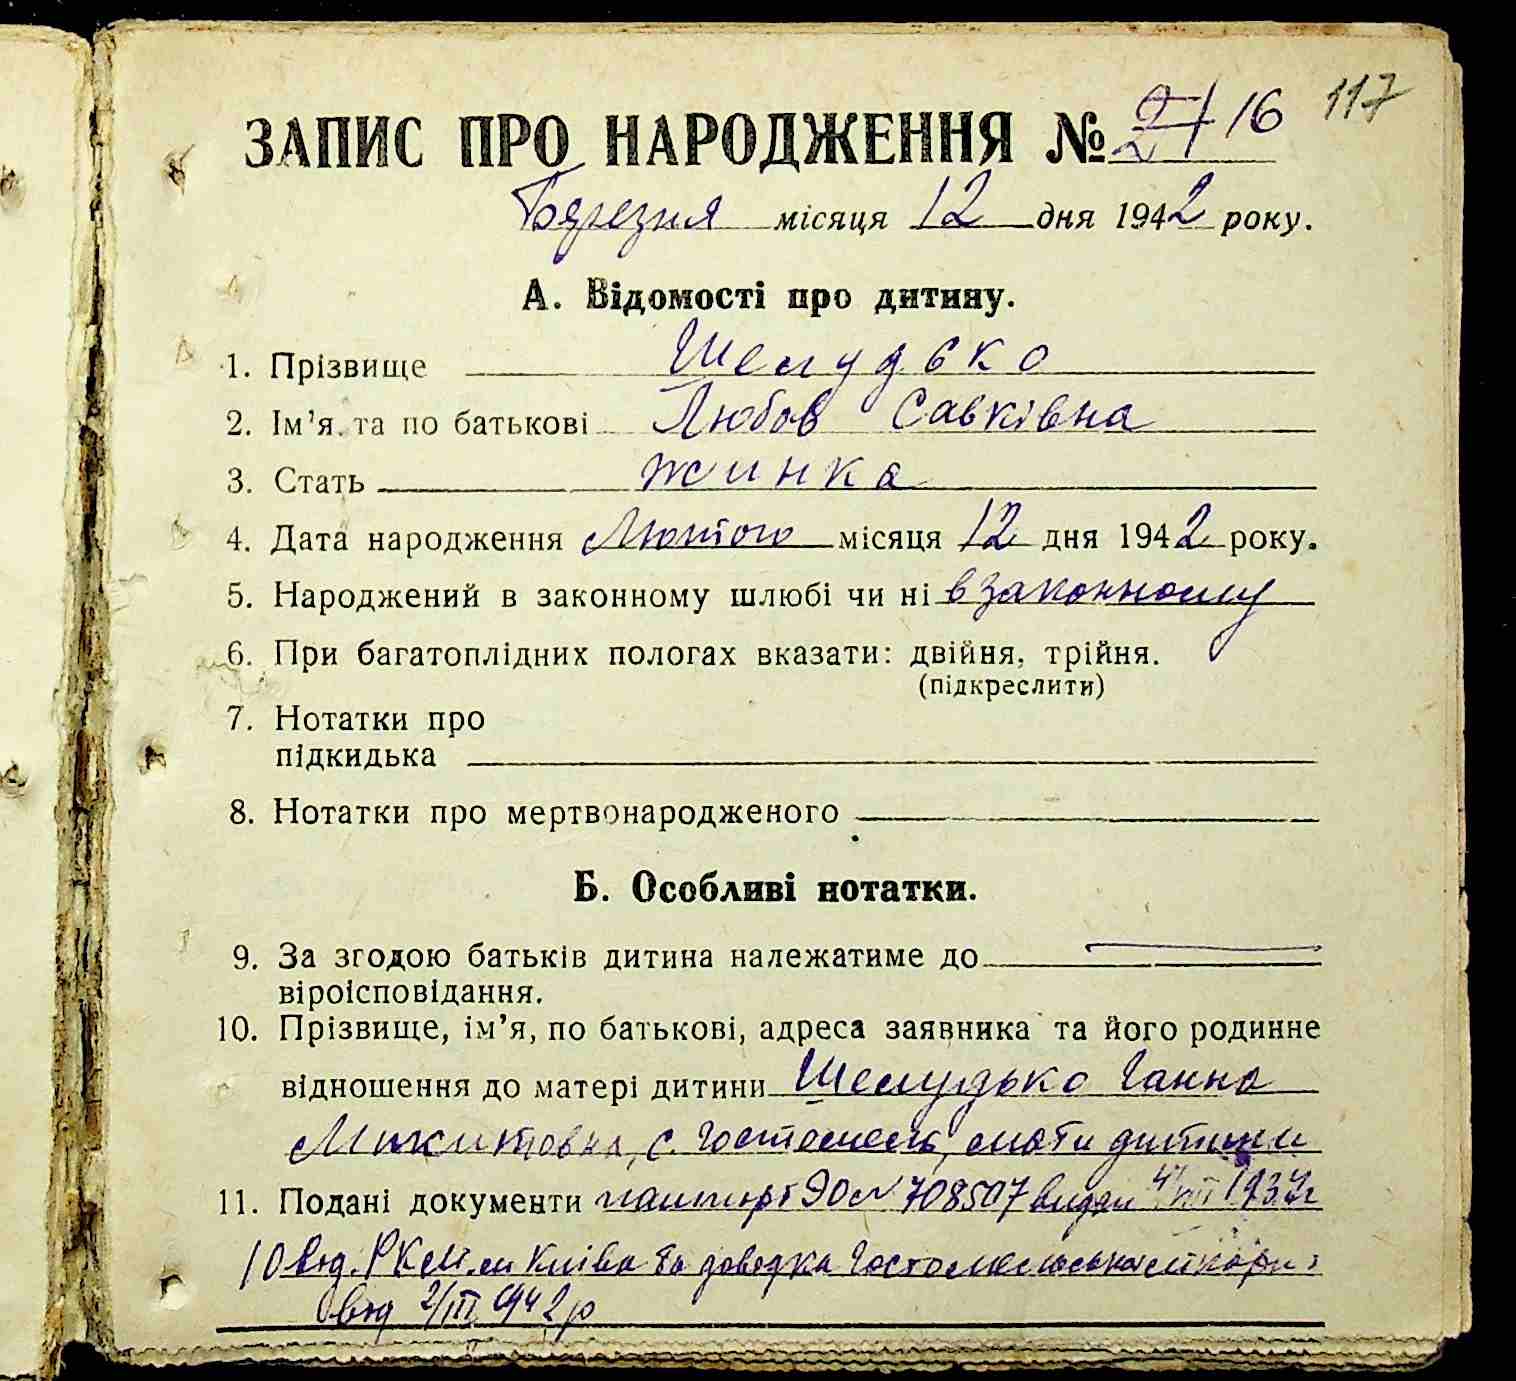 117
ЗАПИС ПРО НАРОДЖЕННЯ № 21 16
Березня місяця 12 дня 1942 року.
А. Відомості про дитину.
1. Прізвище Шелудько
2. Ім’я та по батькові Любов Савківна
3. Стать жинка
4. Дата народження Лютого місяця 12 дня 1942 року.
5. Народжений в законному шлюбі чи ні в законному
6. При багатоплідних пологах вказати: двійня, трійня.
(підкреслити)
7. Нотатки про
підкидька
8. Нотатки про мертвонародженого
Б. Особливі нотатки.
9. За згодою батьків дитина належатиме до
віроісповідання.
10. Прізвище, ім’я, по батькові, адреса заявника та його родинне
відношення до матері дитини Шелудько Ганна
Микитовна, с. Гостомель, мати дитини
11. Подані документи паспорт 708507 видан 193
10 від. РКМ м Київа та довідка Гостомельської лікарні
від 2/III 1942 р